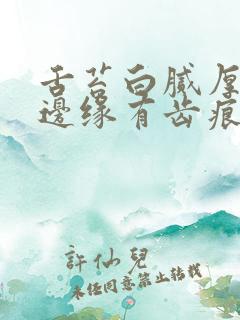 舌苔白腻厚
邊缘有齿痕
許仙兒
未经同意禁止转载